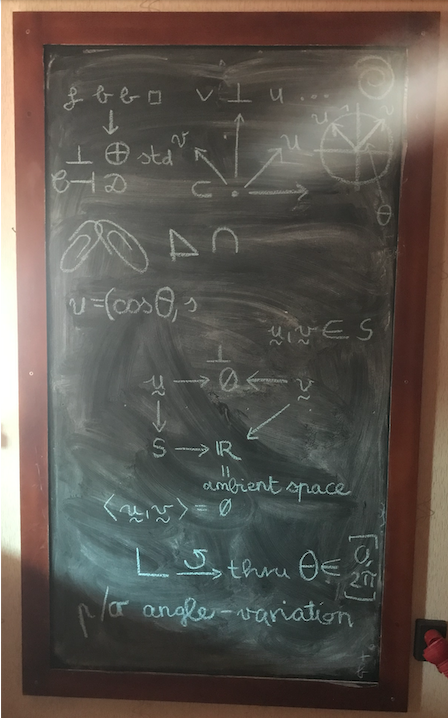 v ⊥ u ...
⊥ ⊕ std v u u v
C
θ
v = (cosθ, s
u, v ∈ S
⊥
u → ∅ ← v
S → ℝ
=
ambient space
⟨u, v⟩ = ∅
thru θ ∈ [0, 2π]
angle-variation